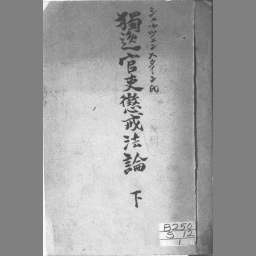 シュルツェンスタイン氏
獨逸官吏懲戒法論
下
B252
S 12
1